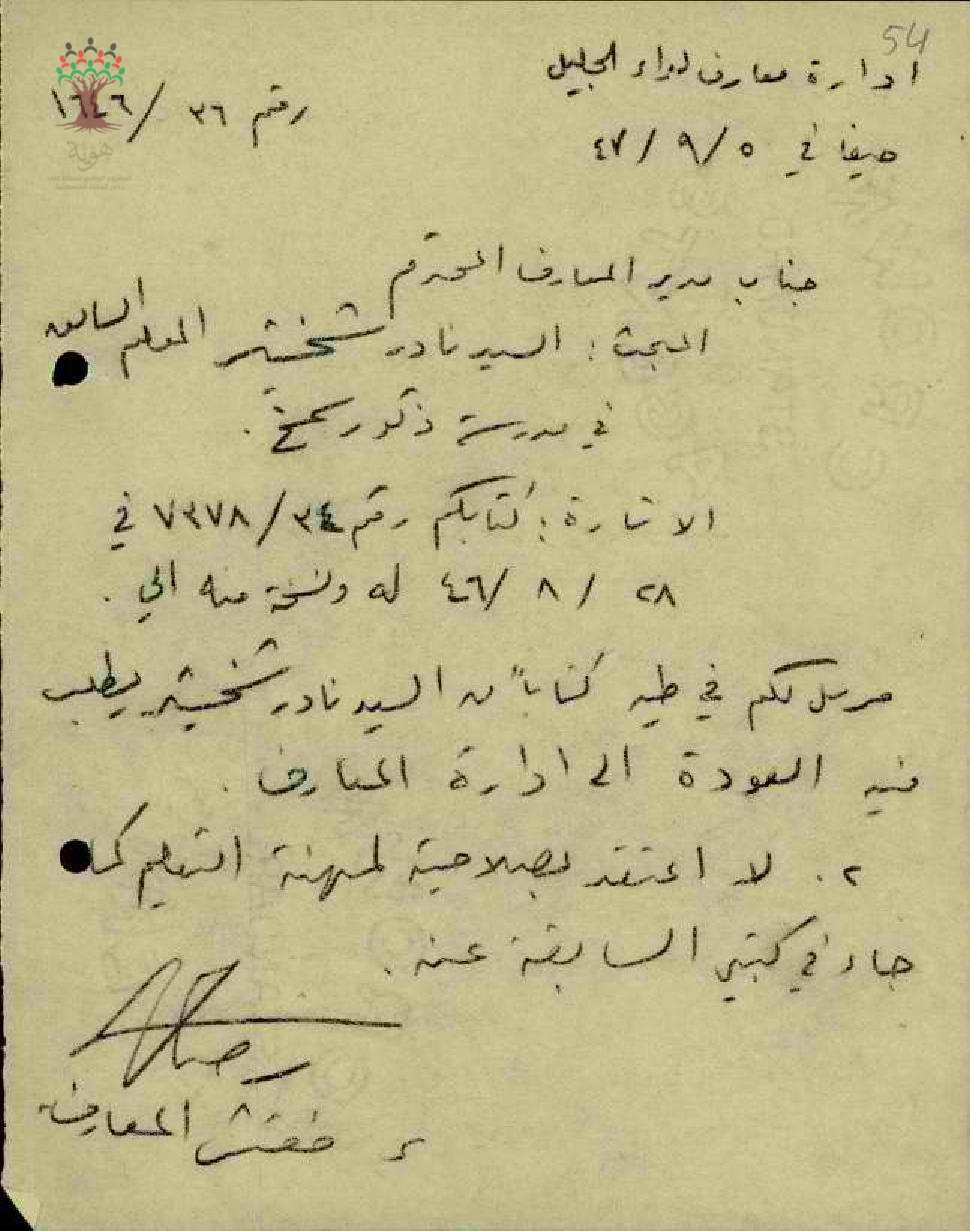 54
ادارة معارف لواء الجليل
رقم ٣٦ / ١٦٤٦
حيفا في ٥ / ٩ / ٤٧
هوية
جناب مدير المعارف المحترم
المبحث : السيد نادر شخشير المعلم السابق
في مدرسة ذكور سمخ .
الاشارة : كتابكم رقم ٣٤ / ٧٣٧٨ في
٢٨ / ٨ / ٤٦ له ونسخة منه الي .
مرسل لكم في طيه كتاباً من السيد نادر شخشير يطلب
فيه العودة الى ادارة المعارف .
٢ . لا اعتقد بصلاحية لمهنة التعليم كما
جاء في كتبي السابقة عنه .
مفتش المعارف